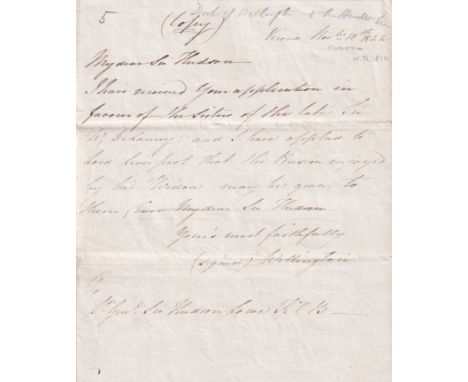 5
(Copy)
Duke of Wellington
Verona Novr. 10th 1822
Verona
My dear Sir Hudson
I have received your application in
favour of the Sisters of the late Sir
W. DeLancey; and I have applied to
Lord Liverpool that the Pension enjoyed
by his Widow may be given to
them; Ever My dear Sir Hudson
Your's most faithfully
(signed) Wellington
To
Lt. Genl. Sir Hudson Lowe K C B